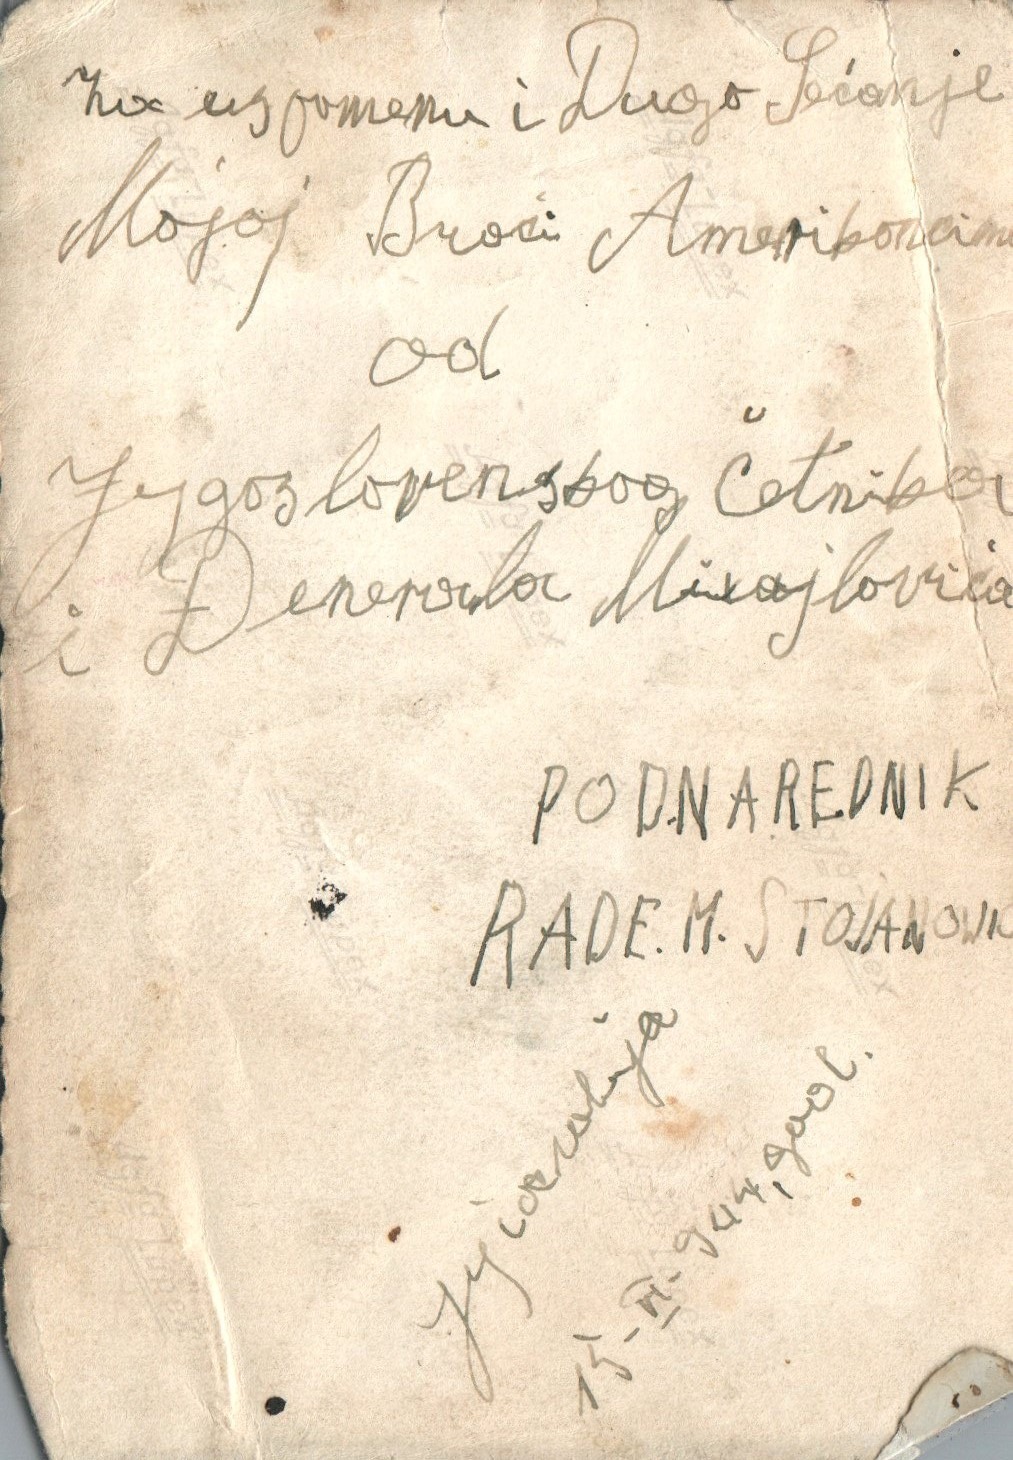 Za uspomenu i Dugo Sećanje
Mojoj Braći Amerikancima
od
Jygoslovenskog Četnika
i Đenerala Mixajlovića
PODNAREDNIK
RADE. M. STOJANOVIĆ
15-VI-944, god.